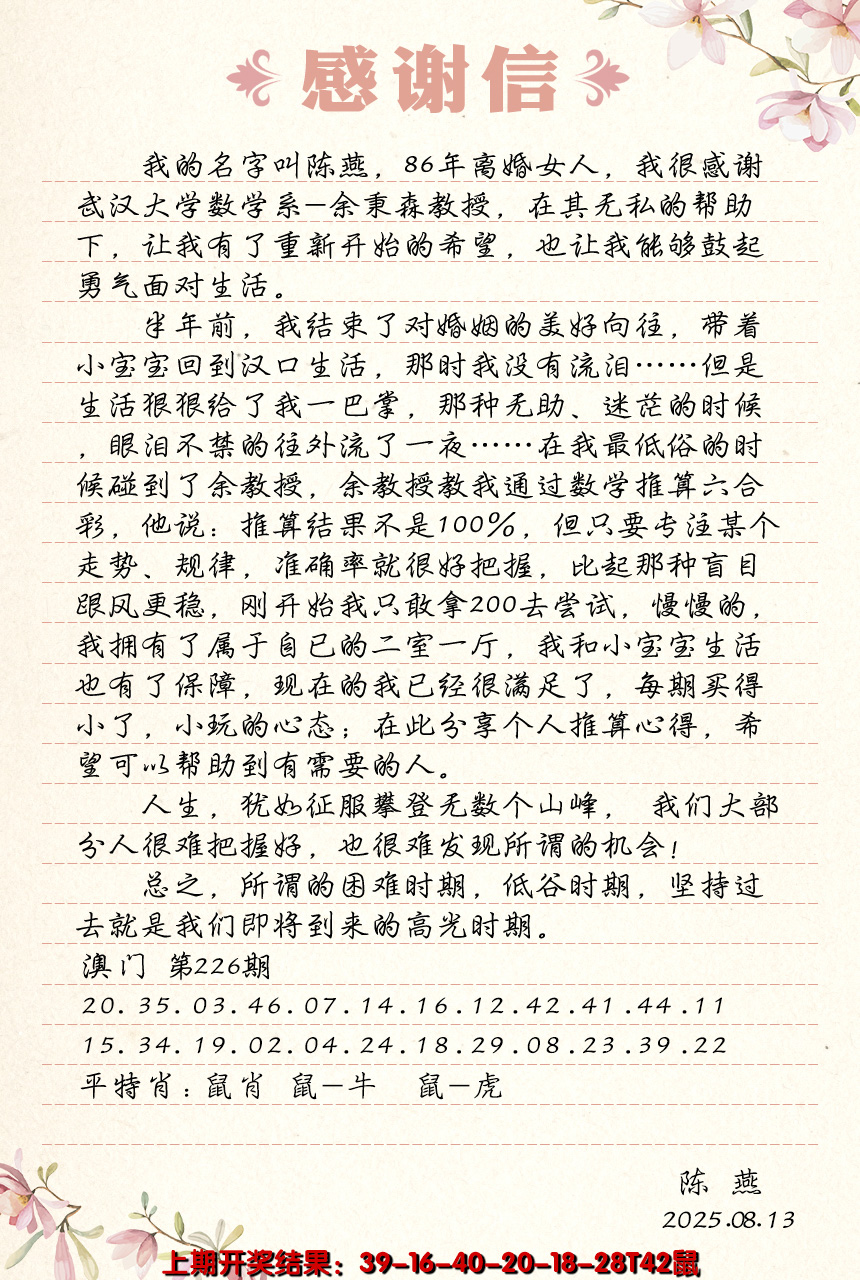 感谢信
我的名字叫陈燕，86年离婚女人，我很感谢
武汉大学数学系—余秉森教授，在其无私的帮助
下，让我有了重新开始的希望，也让我能够鼓起
勇气面对生活。
半年前，我结束了对婚姻的美好向往，带着
小宝宝回到汉口生活，那时我没有流泪……但是
生活狠狠给了我一巴掌，那种无助、迷茫的时候
，眼泪不禁的往外流了一夜……在我最低俗的时
候碰到了余教授，余教授教我通过数学推算六合
彩，他说：推算结果不是100%，但只要专注某个
走势、规律，准确率就很好把握，比起那种盲目
跟风更稳，刚开始我只敢拿200去尝试，慢慢的，
我拥有了属于自已的二室一厅，我和小宝宝生活
也有了保障，现在的我已经很满足了，每期买得
小了，小玩的心态；在此分享个人推算心得，希
望可以帮助到有需要的人。
人生，犹如征服攀登无数个山峰， 我们大部
分人很难把握好，也很难发现所谓的机会！
总之，所谓的困难时期，低谷时期，坚持过
去就是我们即将到来的高光时期。
澳门 第226期
20.35.03.46.07.14.16.12.42.41.44.11
15.34.19.02.04.24.18.29.08.23.39.22
平特肖：鼠肖 鼠—牛 鼠—虎
陈 燕
2025.08.13
上期开奖结果：39-16-40-20-18-28T42鼠